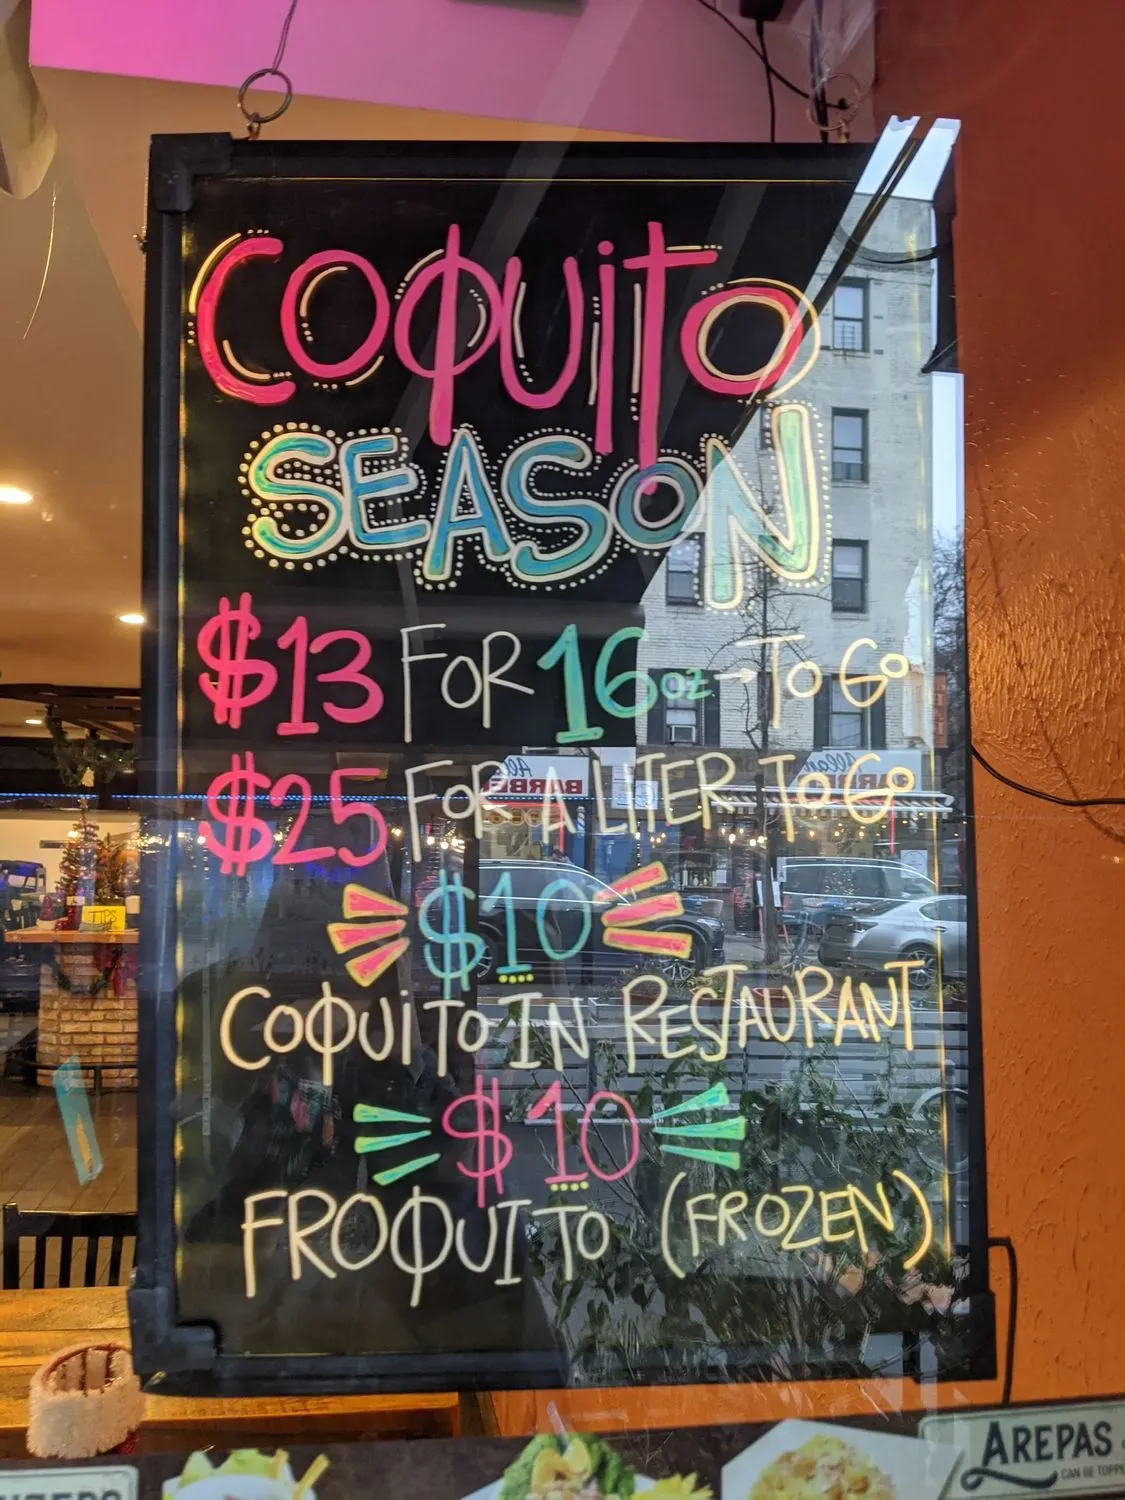 COQUITO
SEASON
$13 FOR 16oz → TO GO
$25 FOR A LITER TO GO
$10
COQUITO IN RESTAURANT
$10
FROQUITO (FROZEN)
TIPS
AREPAS
CAN BE